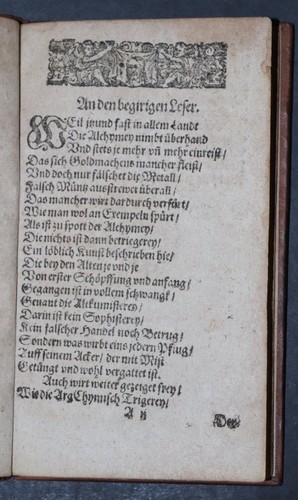 An den begirigen Leser.
WEil jtzund fast in allem Landt
Die Alchymey nimbt überhand
Vnd stets je mehr vñ mehr einreist/
Das sich Goldmachens mancher fleist/
Vnd doch nur fälschet die Metall/
Falsch Müntz ausstrewet überall/
Das mancher wirt dardurch verfürt/
Wie man wol an Exempeln spürt/
Als ist zu spott der Alchymey/
Die nichts ist dann betriegerey/
Ein löblich Kunst beschrieben hie/
Die bey den Alten je vnd je
Von erster Schöpffung vnd anfang/
Gegangen ist in vollem schwangk/
Genant die Alckumisterey/
Darin ist kein Sophisterey/
Kein falscher Handel noch Betrug/
Sondern was wirbt eins jedern Pflug/
Auff seinem Acker/ der mit Mist
Getüngt vnd wohl vergattet ist.
Auch wirt weiter gezeiget frey/
Wie die Arg Chymisch Trigerey/
A ij
Der